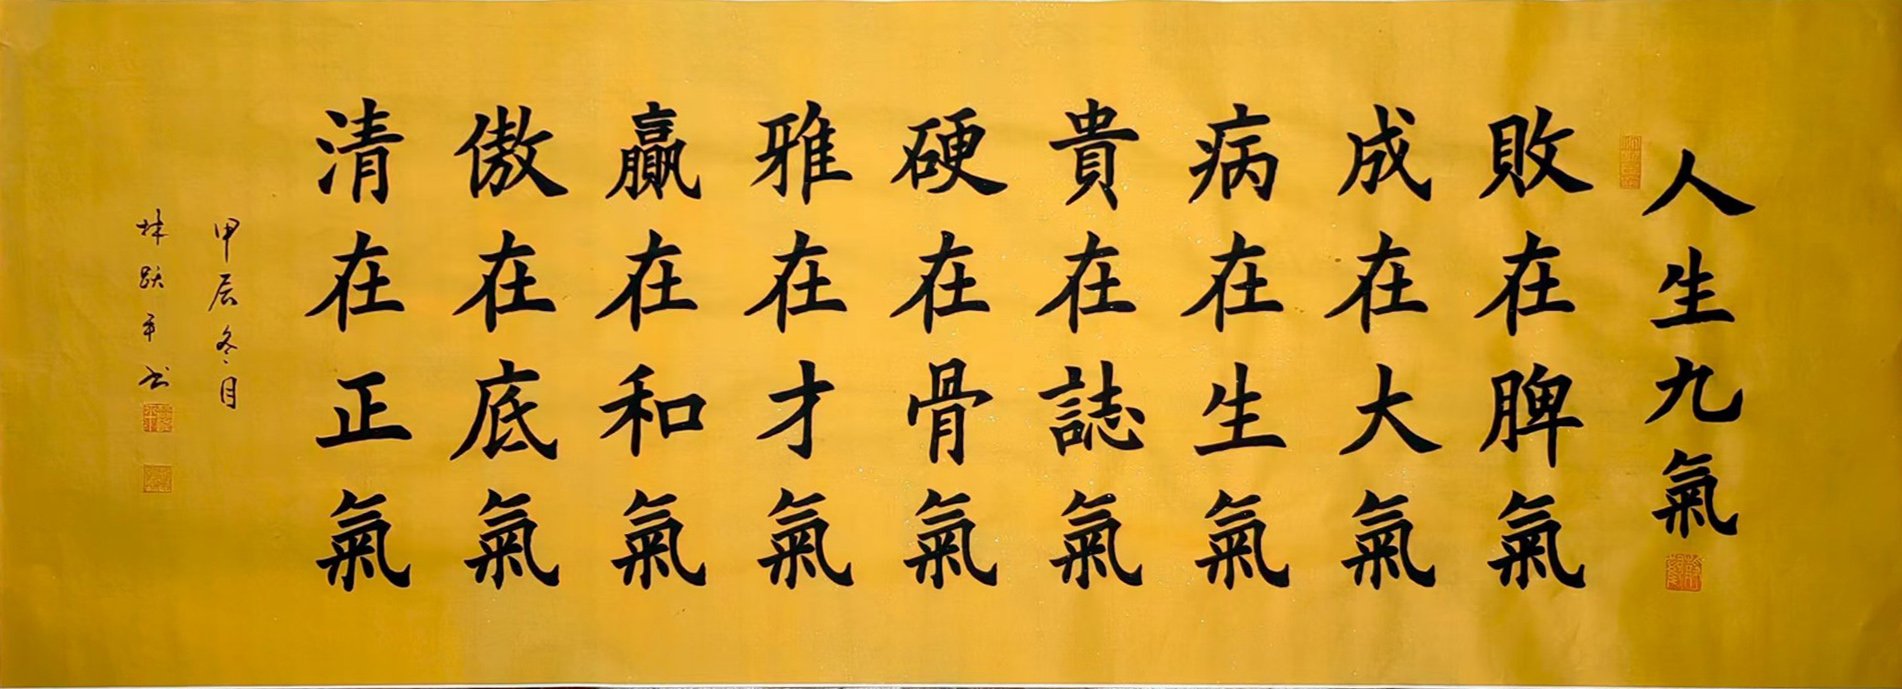 人生九氣
敗在脾氣
成在大氣
病在生氣
貴在誌氣
硬在骨氣
雅在才氣
贏在和氣
傲在底氣
清在正氣
甲辰冬月
林跃平书